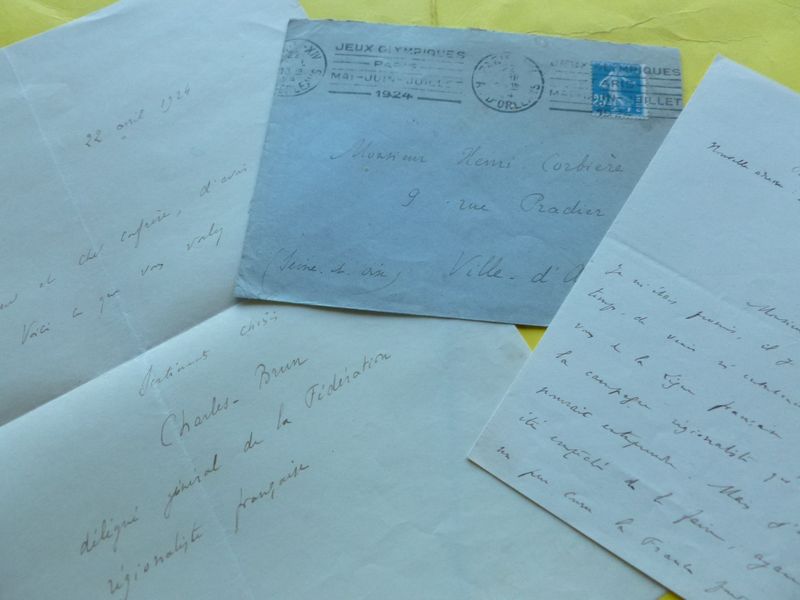 22 avril 1924
et cher confrère, d'avoir
Voici ce que vous
JEUX OLYMPIQUES
PARIS
MAI-JUIN-JUILLET
1924
JEUX OLYMPIQUES
PARIS
MAI-JUIN-JUILLET
Monsieur Henri Corbière
9 rue Pradier
(Seine-et-Oise) Ville-d'A
Charles-Brun
délégué général de la Fédération
régionaliste française.
Nouvelle adresse
Monsieur
Je m'étais promis, il y
temps, de venir
vous de la Ligue française
la campagne régionaliste qu
pourrait entreprendre. Mais j'
été empêché de le faire, ayant
un peu la France